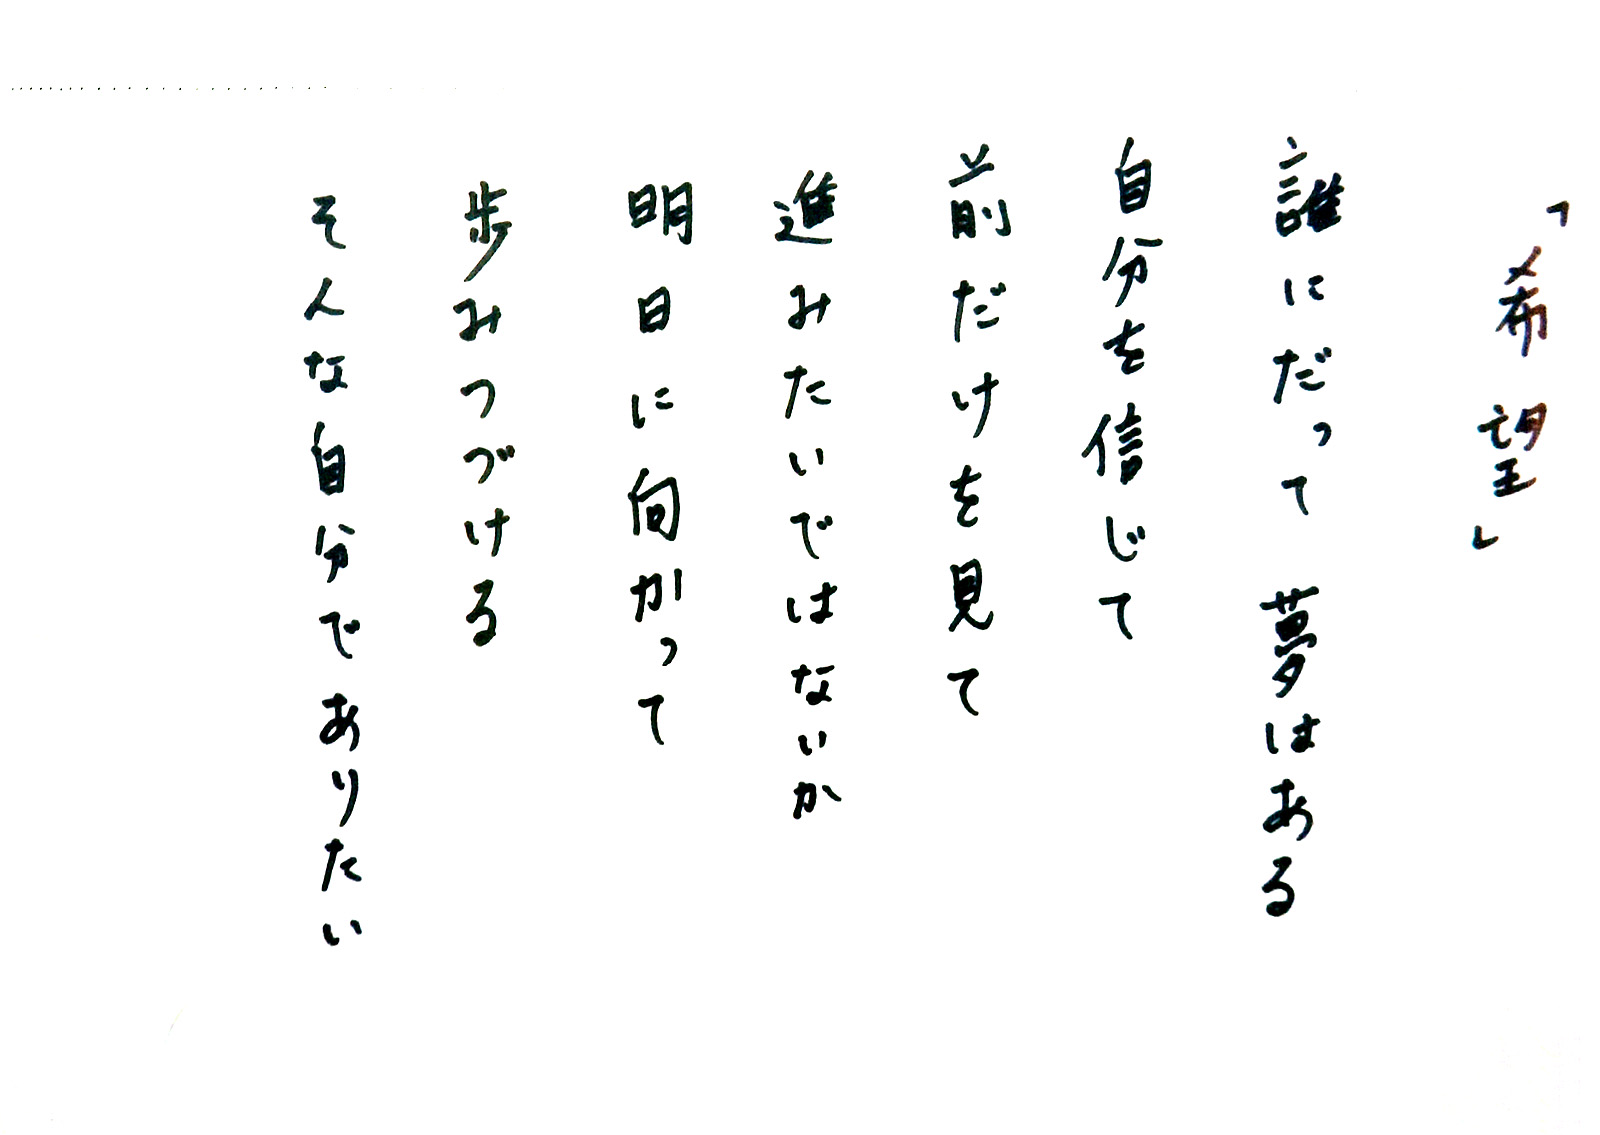 「希望」
誰にだって夢はある
自分を信じて
前だけを見て
進みたいではないか
明日に向かって
歩みつづける
そんな自分でありたい